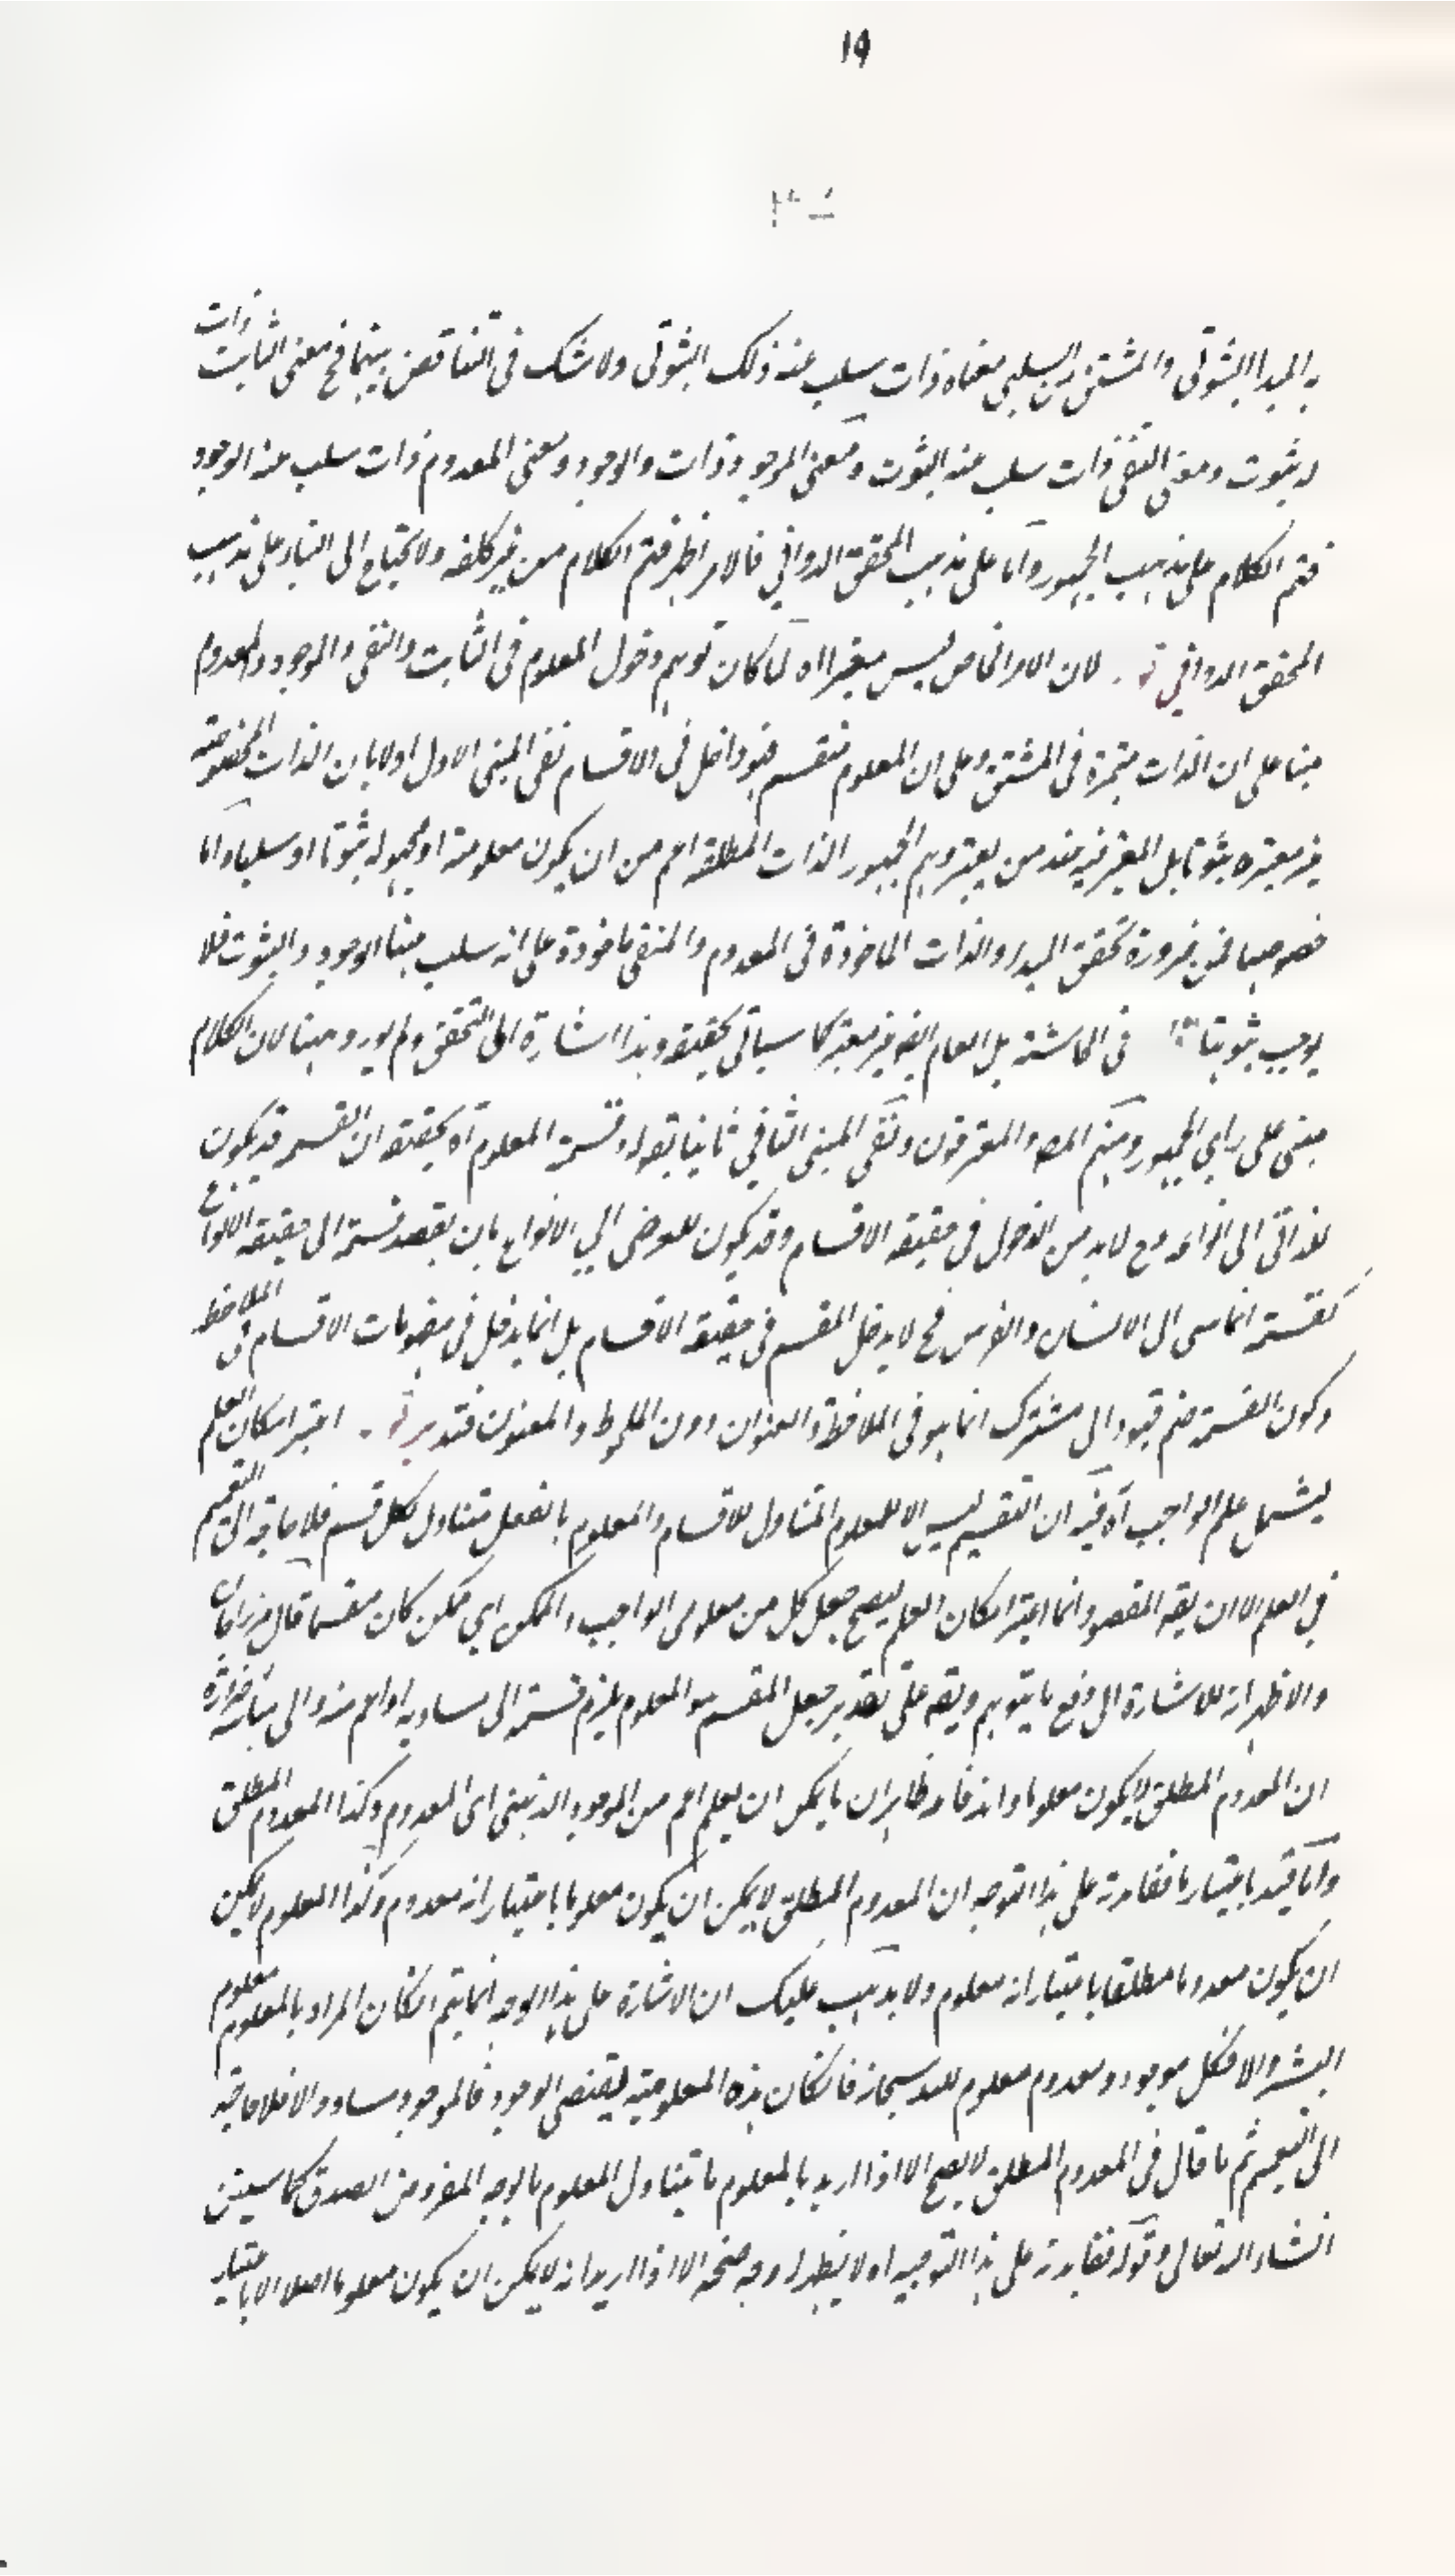 ١٩
به المبدا الثبوتى والمشتق من السلبى معناه ذات سلب عنه ذلك الثبوتى ولا شك فى التناقض بينهما فح معنى الثابت ذات
له ثبوت ومعنى المنفى ذات سلب عنه الثبوت ومعنى الموجود ذات له الوجود ومعنى المعدوم ذات سلب عنه الوجود
فتم الكلام على مذهب الجمهور واما على مذهب المحقق الدوانى فالامر اظهر فتم الكلام من غير كلفه ولا يحتاج الى البناء على مذهب
المحقق الدوانى قوله لان الامر الخاص ليس معتبرا اه لما كان توهم دخول المعدوم فى الثابت والمنفى والموجود والمعدوم
مبنا على ان الذات معتبرة فى المشتق وعلى ان المعلوم منقسم فهو داخل فى الاقسام نفى المبنى الاول اولا بان الذات المخصوصة
غير معتبره ثبوتا بل المعتبر فيه عند من يعتبره وهم الجمهور الذات المطلقه اعم من ان يكون معلومة او مجهوله ثبوتا او سلبا واما
خصوصها فمن ضرورة تحقق المبدا والذات الماخوذة فى المعدوم والمنفى ماخوذة على انه سلب عنها الوجود والثبوت فلا
يوجب ثبوتها فى الحاشية بل العام ايضا غير معتبر كما سياتى تحقيقه وهذا اشارة الى التحقق ولم يورد ههنا لان الكلام
مبنى على راى الجمهور ومنهم المصه والمعترضون ونفى المبنى الثانى ثانيا بقوله وقسمة المعلوم اه تحقيقه ان القسمه قد يكون
للذاتى الى انواعه وح لابد من الدخول فى حقيقه الاقسام وقد يكون للعرضى الى الانواع بان يقصد قسمة الى حقيقه الانواع
كقسمة الماشى الى الانسان والفرس فح لا يدخل المقسم فى حقيقه الاقسام بل انما يدخل فى مفهومات الاقسام فى الملاحظه
وكون القسمة ضم قيود الى مشترك انما هو فى الملاحظة والعنوان دون الملحوظ والمعنون فتدبر قوله اعتبر امكان العلم
ليشمل علم الواجب اه فيه ان التقسيم ليس الا للمعلوم المتناول للاقسام والمعلوم بالفعل متناول لكل قسم فلا حاجة الى التعميم
فى العلم الا ان يقه المقصود انما اعتبر امكان العلم ليصح جعل كل من معلومى الواجب والممكن اى ممكن كان مقسما قال ميرزاجان
والاظهر انه للاشارة الى دفع ما يتوهم ويقه على تقدير جعل المقسم هو المعلوم يلزم قسمته الى مساويه او اعم منه والى مباينه ضرورة
ان المعدوم المطلق لا يكون معلوما وانه فاسد ظاهر ان ما يمكن ان يعلم اعم من الموجود الذهنى اى المعدوم وكذا المعدوم المطلق
واما قيد باعتبار ما ففايدته على هذا التوجيه ان المعدوم المطلق لا يمكن ان يكون معلوما باعتبار انه معدوم وكذا المعلوم لا يمكن
ان يكون معدوما مطلقا باعتبار انه معلوم ولا يذهب عليك ان الاشارة على هذا الوجه انما يتم ان كان المراد بالمعلوم معلوم
البشر والا فكل موجود ومعدوم معلوم لله سبحانه فان كان هذه المعلومية يقتضى الوجود فالموجود مساو والا فلا حاجة
الى التعميم ثم ما قال فى المعدوم المطلق لا يصح الا اذا اريد بالمعلوم ما يتناول المعلوم بالوجه المفروض الصدق كما سيبين
انشاء الله تعالى وقوله ففايدته على هذا التوجيه اه لا يظهر له وجه صحة الا اذا اريد انه لا يمكن ان يكون معلوما اصلا الا باعتبار